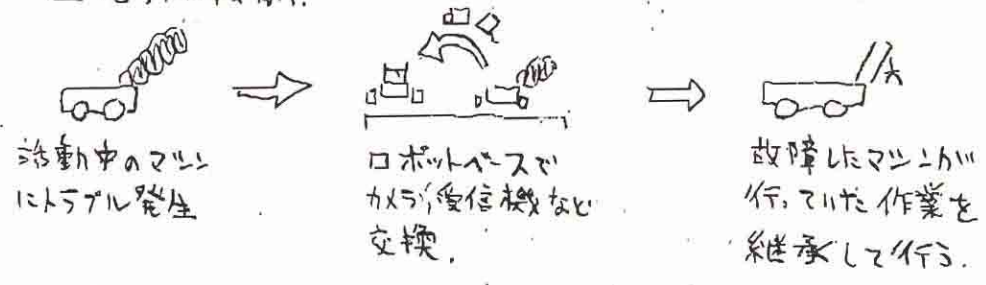 活動中のマシン
にトラブル発生
ロボットベースで
カメラ,受信機など
交換.
故障したマシンが
行っていた作業を
継承して行う.